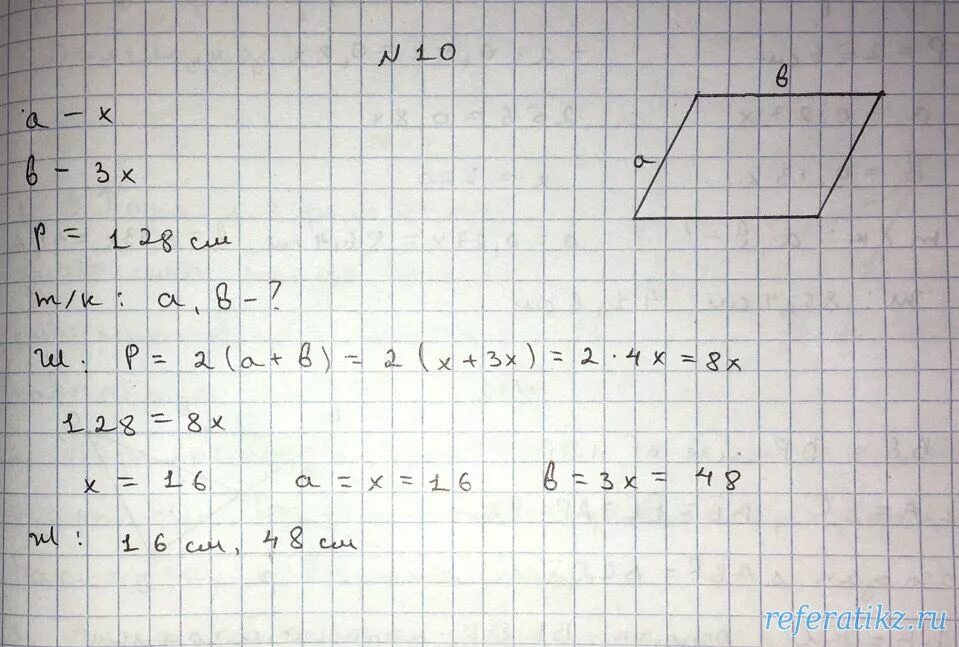 N 10
в
a
a - x
в - 3x
P = 128 см
т/к: a, в - ?
Ш. P = 2(a + в) = 2(x + 3x) = 2 · 4x = 8x
128 = 8x
x = 16 a = x = 16 в = 3x = 48
Ш: 16 см, 48 см
referatikz.ru